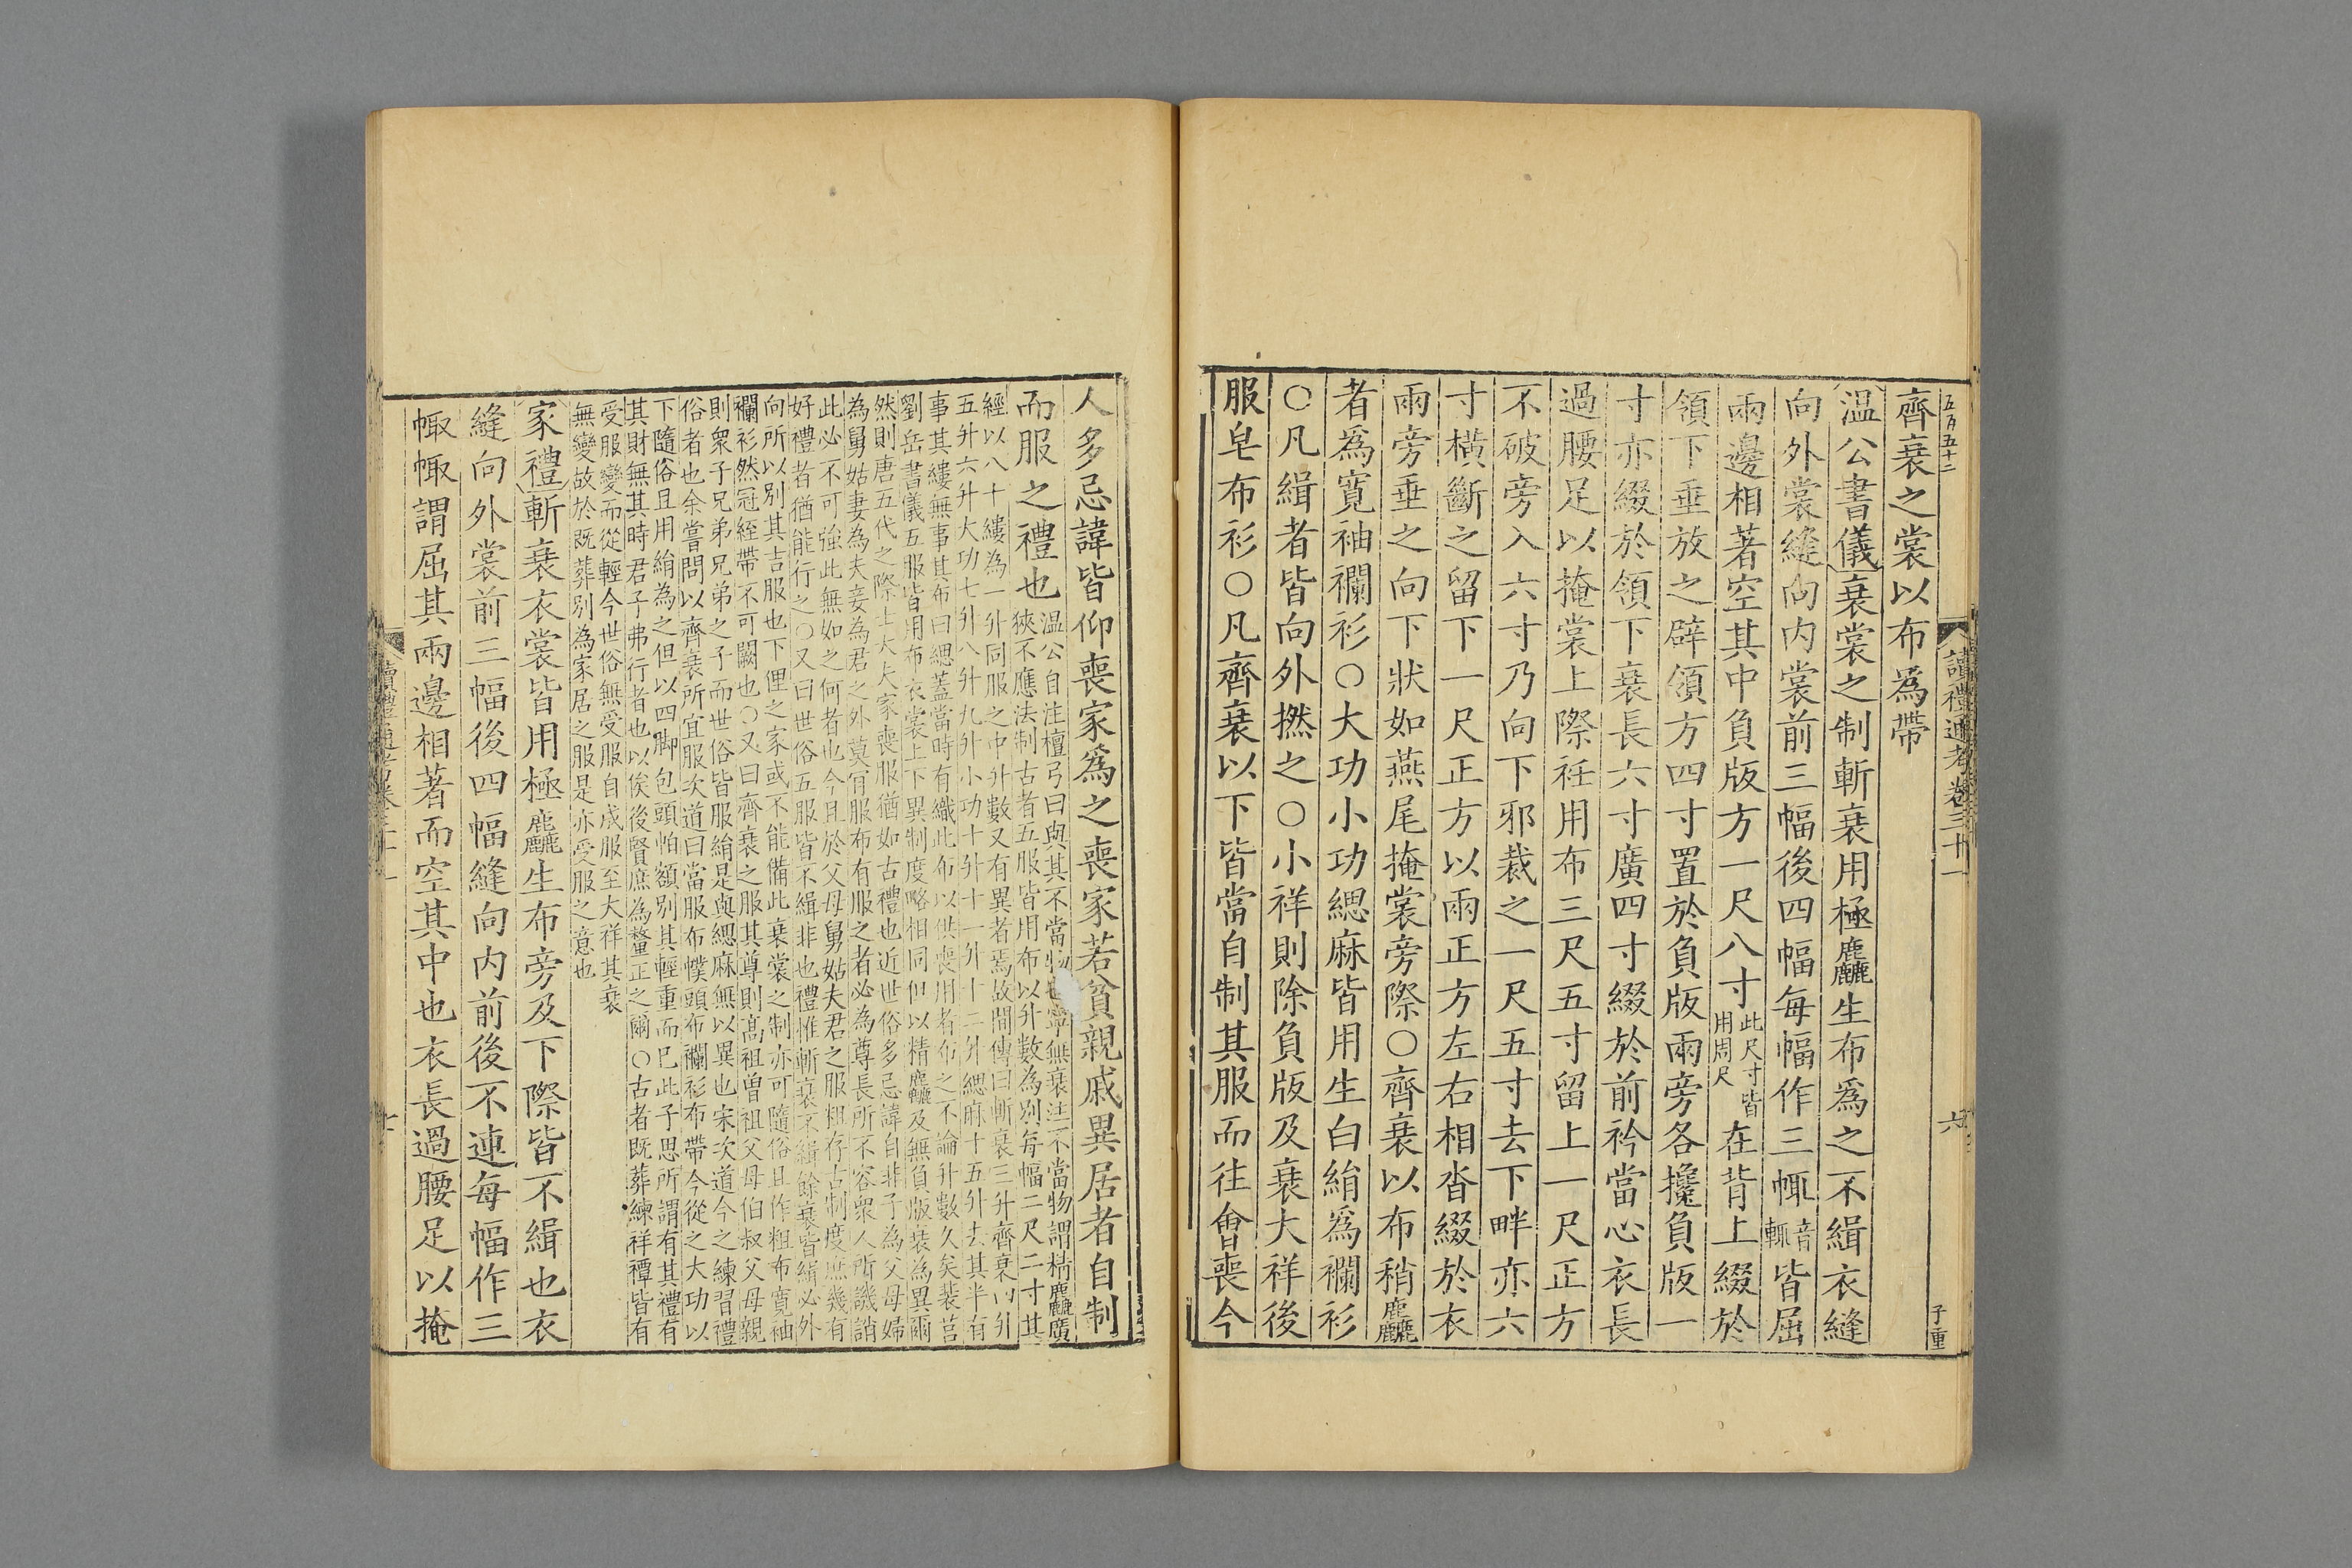 五百五十二
讀禮通考卷三十一
六
子重
齊衰之裳以布爲帶
温公書儀衰裳之制斬衰用極麤生布爲之不緝衣縫
向外裳縫向内裳前三幅後四幅每幅作三㡇音輒皆屈
兩邊相著空其中負版方一尺八寸此尺寸皆用周尺在背上綴於
領下垂放之辟領方四寸置於負版兩旁各攙負版一
寸亦綴於領下衰長六寸廣四寸綴於前衿當心衣長
過腰足以掩裳上際衽用布三尺五寸留上一尺正方
不破旁入六寸乃向下邪裁之一尺五寸去下畔亦六
寸橫斷之留下一尺正方以兩正方左右相沓綴於衣
兩旁垂之向下狀如燕尾掩裳旁際○齊衰以布稍麤
者爲寬袖襴衫○大功小功緦麻皆用生白絹爲襴衫
○凡緝者皆向外撚之○小祥則除負版及衰大祥後
服皂布衫○凡齊衰以下皆當自制其服而往會喪今
人多忌諱皆仰喪家爲之喪家若貧親戚異居者自制
而服之禮也
温公自注檀弓曰與其不當物也寧無衰注不當物謂精麤廣
狹不應法制古者五服皆用布以升數為別每幅二尺二寸其
經以八十縷為一升同服之中升數又有異者焉故間傳曰斬衰三升齊衰四升
五升六升大功七升八升九升小功十升十一升十二升緦麻十五升去其半有
事其縷無事其布曰緦蓋當時有織此布以供喪用者布之不論升數久矣裴莒
劉岳書儀五服皆用布衣裳上下異制度略相同但以精麤及無負版衰為異爾
然則唐五代之際士大夫家喪服猶如古禮也近世俗多忌諱自非子為父母婦
為舅姑妻為夫妾為君之外莫肯服布有服之者必為尊長所不容衆人所譏誚
此必不可強此無如之何者也今且於父母舅姑夫君之服粗存古制度庶幾有
好禮者猶能行之○又曰世俗五服皆不緝非也禮惟斬衰不緝餘衰皆緝必外
向所以別其吉服也下俚之家或不能備此衰裳之制亦可隨俗且作粗布寬袖
襴衫然冠絰帶不可闕也○又曰齊衰之服其尊則高祖曾祖父母伯叔父母親
則衆子兄弟兄弟之子而世俗皆服絹是與緦麻無以異也宋次道今之練習禮
俗者也余嘗問以齊衰所宜服次道曰當服布幞頭布襴衫布帶今從之大功以
下隨俗且用絹為之但以四脚包頭帕額別其輕重而已此子思所謂有其禮有
其財無其時君子弗行者也以俟後賢庶為釐正之爾○古者既葬練祥禫皆有
受服變而從輕今世俗無受服自成服至大祥其衰
無變故於既葬別為家居之服是亦受服之意也
家禮斬衰衣裳皆用極麤生布旁及下際皆不緝也衣
縫向外裳前三幅後四幅縫向内前後不連每幅作三
㡇㡇謂屈其兩邊相著而空其中也衣長過腰足以掩
讀禮通考卷三十一
七